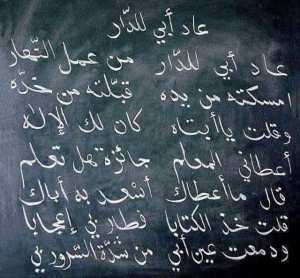 عاد أبي للدار
عاد أبي للدار من عمل النهار
امسكته من يده قبلته من خده
وقلت ياأبتاه كان لك الإله
أعطاني المعلم جائزة هل تعلم
قال ماأعطاك أسعد به أباك
قلت خذ الكتابا فطار بي إعجابا
ودمعت عين أبي من شدة السرور بي